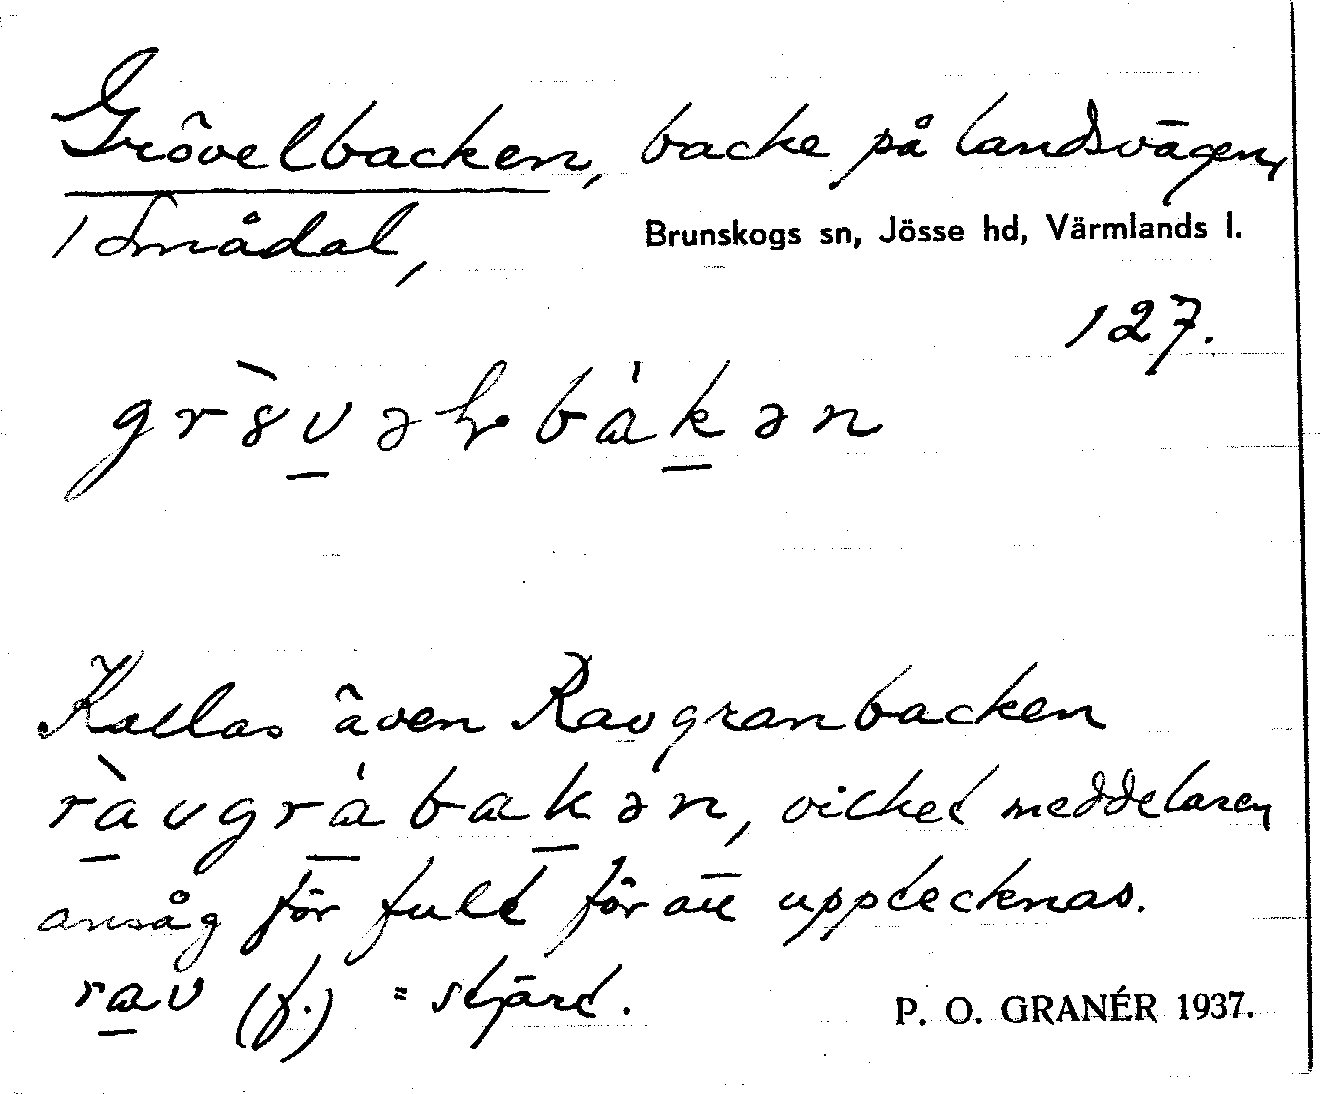 Grövelbacken, backe på landsvägen,
i Smådal,
Brunskogs sn, Jösse hd, Värmlands l.
127.
gr̀ȣvəɬbákən
Kallas även Ravgranbacken
ràvgrábakən, vilket meddelaren
ansåg för fult för att upptecknas.
rav (f.) = stjärt.
P. O. GRANÉR 1937.